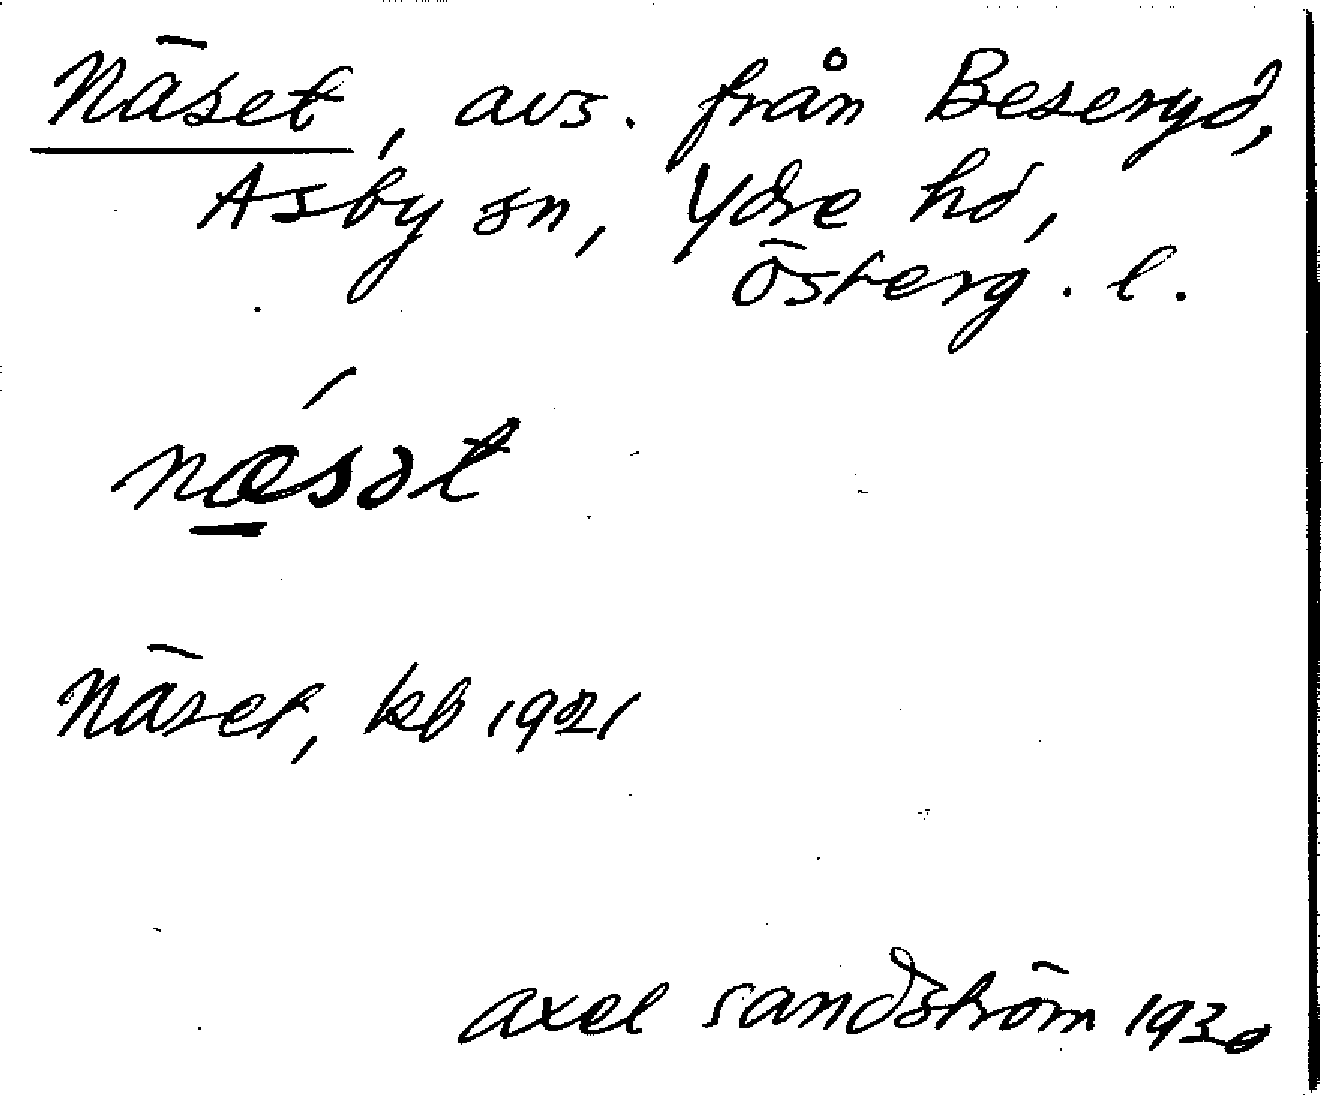 Näset, avs. från Beseryd,
Asby sn, Ydre hd,
Österg. l.
nǽ̲sət
Näset, kb 1921
Axel Sandström 1930